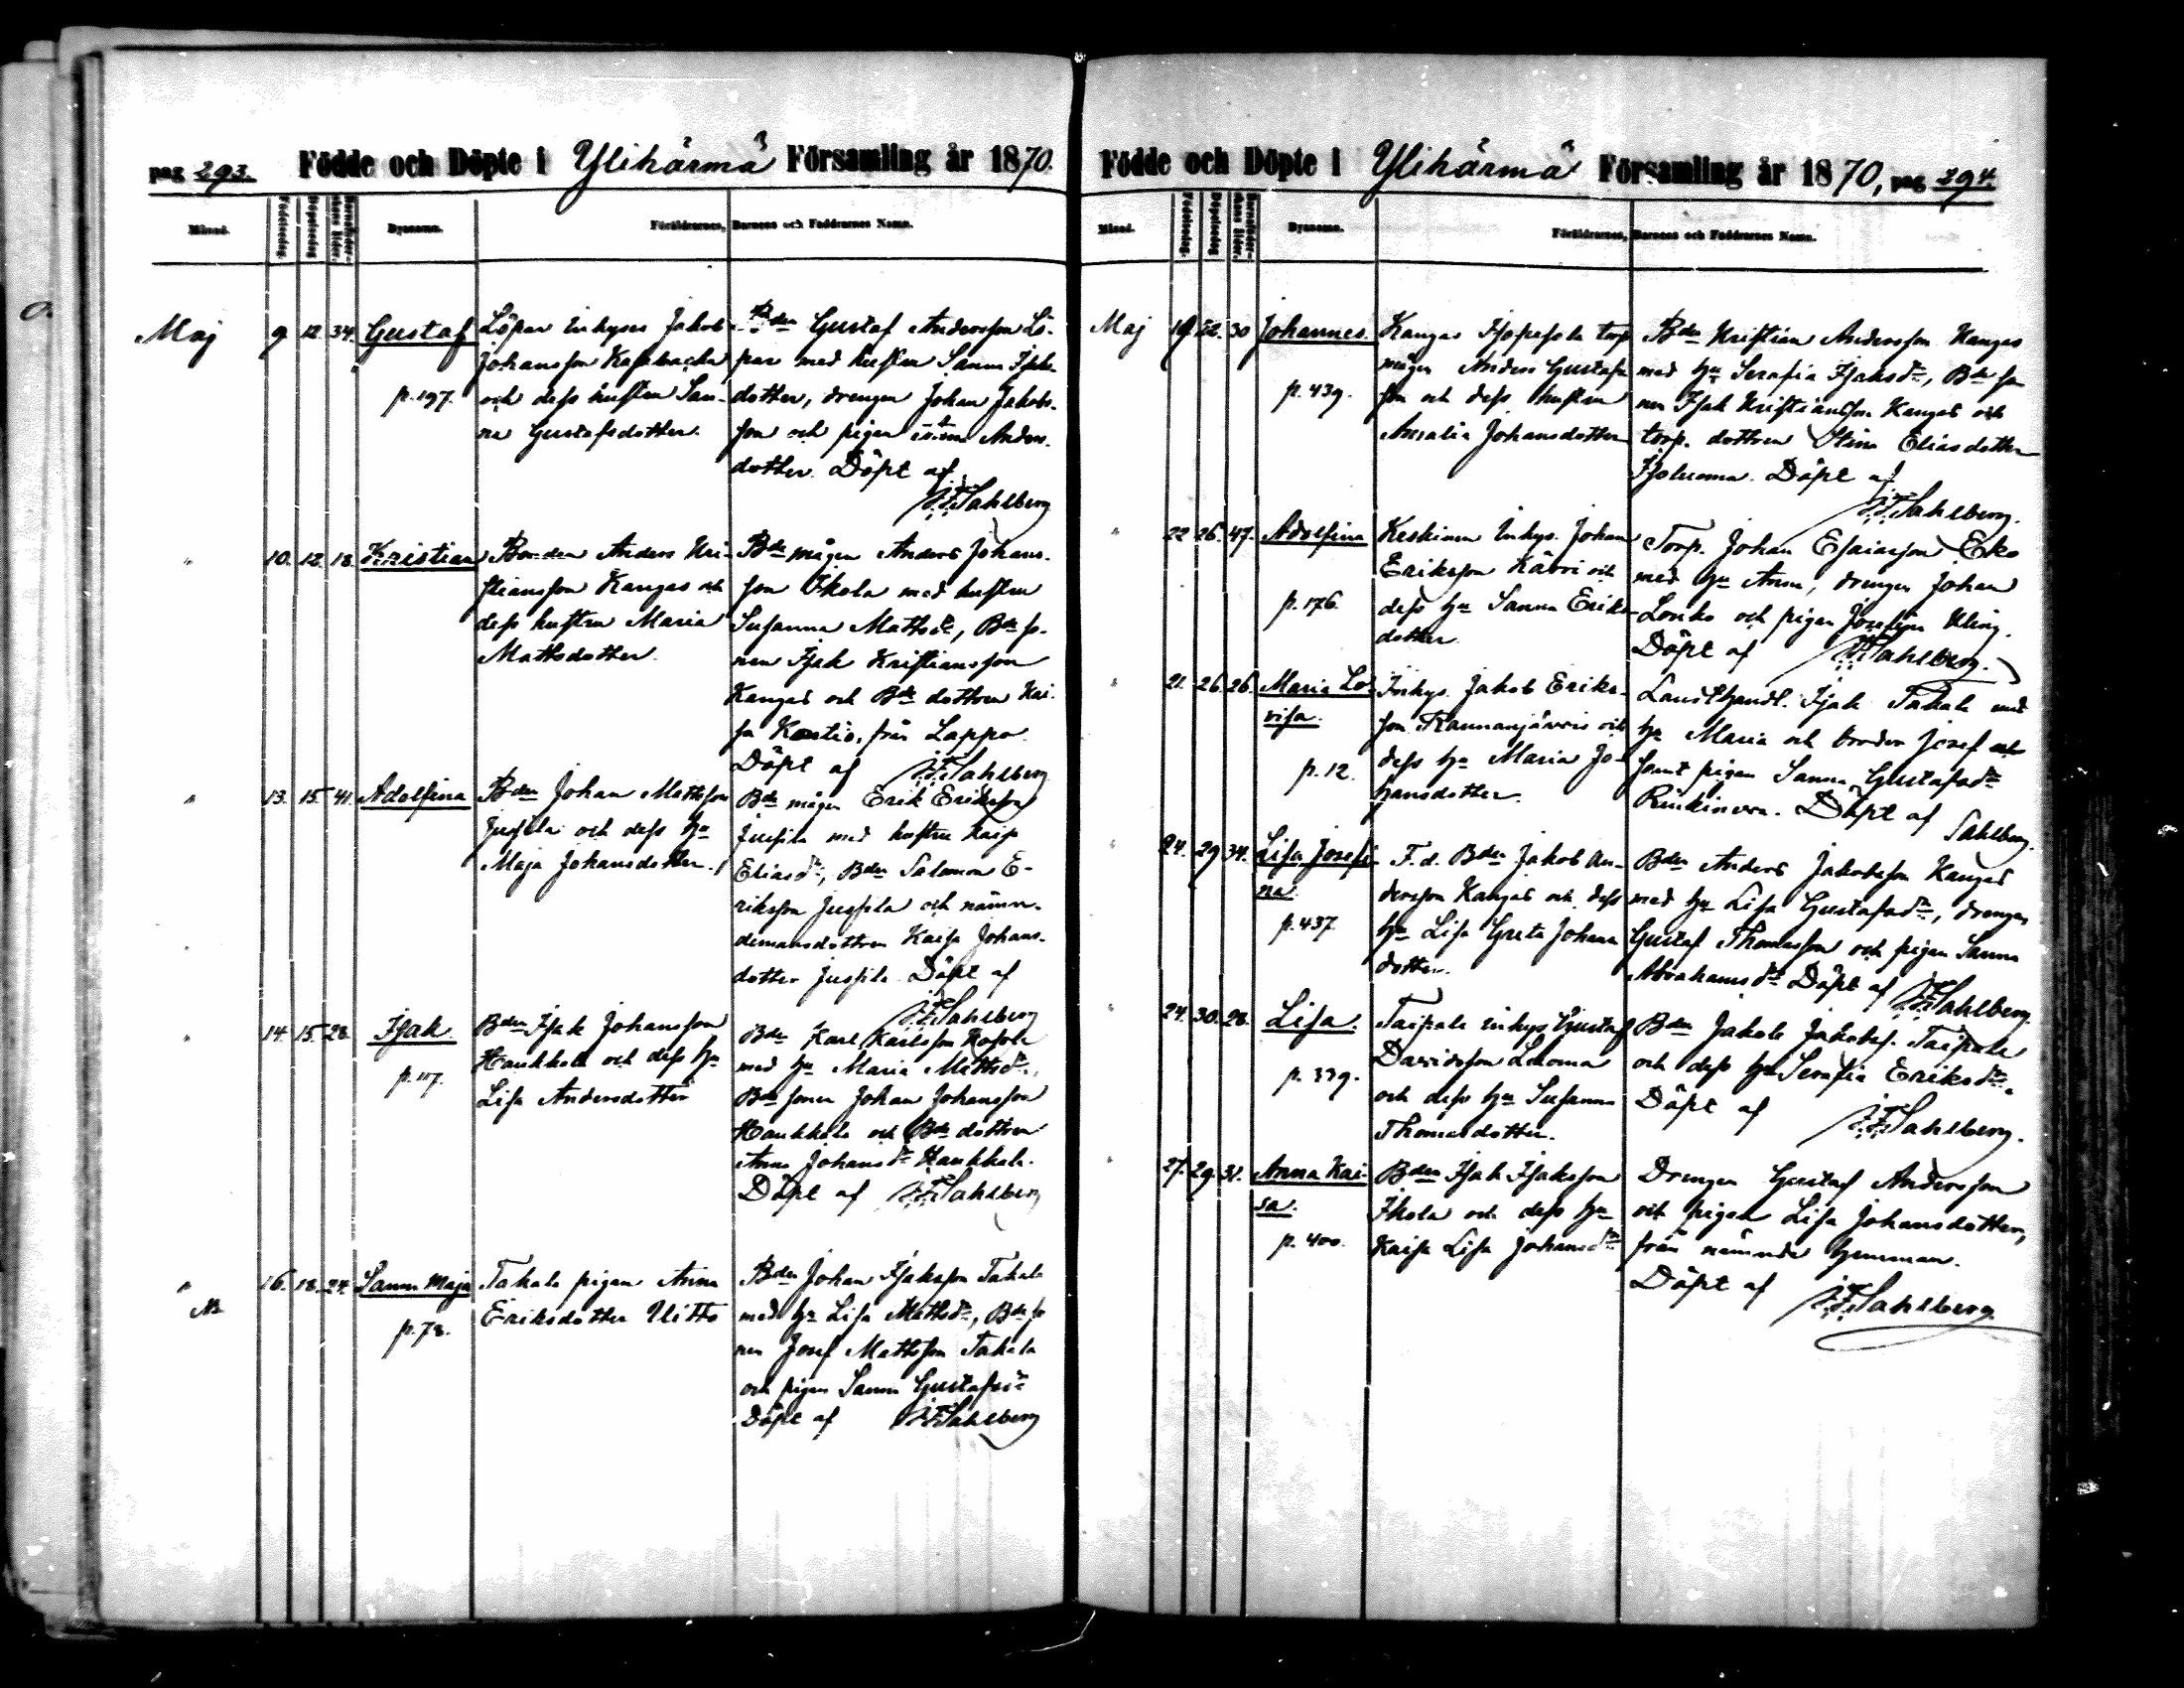 pag 293. Födde och Döpte i Ylihärmä Församling år 1870.
Månad. Födelsedag. Dopelsedag Barnaföderskans ålder. Byanamn. Föräldrarnes, Barnens och Faddrarnes Namn.
Maj 9 12 34. Gustaf
p. 197.
Löpar inhyses Jakob
Johansson
och dess hustru San-
na Gustafsdotter.
Bden Gustaf Andersson Lö-
par med hustru Sanna Isaks
dotter, drengen Johan Jakobs-
son och pigan Anders-
dotter. Döpt af
J.F. Sahlberg
" 10. 12. 18. Kristian
Bonden Anders Kri-
stiansson Kangas och
dess hustru Maria
Mattsdotter.
Bde mågen Anders Johans-
son Ikola med hustru
Susanna Mattsdr, Bde so-
nen Isak Kristiansson
Kangas och Bde dottren Kai-
sa Kontio, från Lappo.
Döpt af J.F. Sahlberg
" 13. 15. 41. Adolfina
Bden Johan Mattsson
Jussila och dess hu
Maja Johansdotter.
Bde mågen Erik Eriksson
Jussila med hustru Kaisa
Eliasdr, Bden Salomon E-
riksson Jussila och nämn-
demansdottren Kaisa Johans-
dotter Jussila. Döpt af
J.F. Sahlberg
" 14. 15. 28. Isak.
p. 117.
Bden Isak Johansson
Haukkala och dess hu
Lisa Andersdotter
Bde Karl Karlsson
med hu Maria Mattsdr,
Bde sonen Johan Johansson
Haukkala och Bde dottren
Anna Johansdr Haukkala.
Döpt af J.F. Sahlberg
" 16. 18. 24. Sanna Maja
p. 78.
Takala pigan Anna
Eriksdotter Uitto
Bden Johan Isaksson Takala
med hu Lisa Mattsdr, Bde so
nen Josef Mattsson Takala
och pigan Sanna Gustafsdr
Döpt af J.F. Sahlberg
Födde och Döpte i Ylihärmä Församling år 1870, pag 294.
Månad. Födelsedag. Dopelsedag Barnaföderskans ålder. Byanamn. Föräldrarnes, Barnens och Faddrarnes Namn.
Maj 19 22. 30 Johannes.
p. 439.
Kangas torp
mågen Anders Gustafs
son och dess hustru
Amalia Johansdotter
Bde Kristian Andersson Kangas
med hu Serafia Isaksdr, Bde so
nen Isak Kristiansson Kangas och
torp. dottren Stina Eliasdotter
Döpt af
J.F. Sahlberg.
" 22 26. 47. Adolfina
p. 176.
Keskinen Inhys. Johan
Eriksson Kärri och
dess hu Sanna Eriks-
dotter.
Torp. Johan Esaiasson Eko
med hu Anna, drengen Johan
Louko och pigan Josefina Kling.
Döpt af J.F. Sahlberg.
" 21. 26. 26. Maria Lo-
visa.
p. 12.
Inhys. Jakob Eriks-
son Rannanjärvi och
dess hu Maria Jo-
hansdotter.
Landthandl. Isak Takala med
hu Maria och brodren Josef
samt pigan Sanna Gustafsdr
Döpt af Sahlberg.
" 24. 29 34. Lisa Josefi-
na.
p. 437.
F. d. Bden Jakob An-
dersson Kangas och dess
hu Lisa Greta Johans
dotter.
Bden Anders Jakobsson Kangas
med hu Lisa Gustafsdr, drengen
Gustaf Thomasson och pigan Sanna
Abrahamsdr Döpt af J.F. Sahlberg.
" 24. 30. 28. Lisa.
p. 339.
Taipale inhys Gustaf
Davidsson Luoma
och dess hu Susanna
Thomasdotter.
Bden Jakob Jakobss. Taipale
och dess hu Serafia Eriksdr.
Döpt af
J.F. Sahlberg.
" 27. 29. 31. Anna Kai-
sa.
p. 400.
Bden Isak Isaksson
Ikola och dess hu
Kaisa Lisa Johansdr
Drengen Gustaf Andersson
och pigan Lisa Johansdotter,
från nämnde hemman.
Döpt af
J.F. Sahlberg.